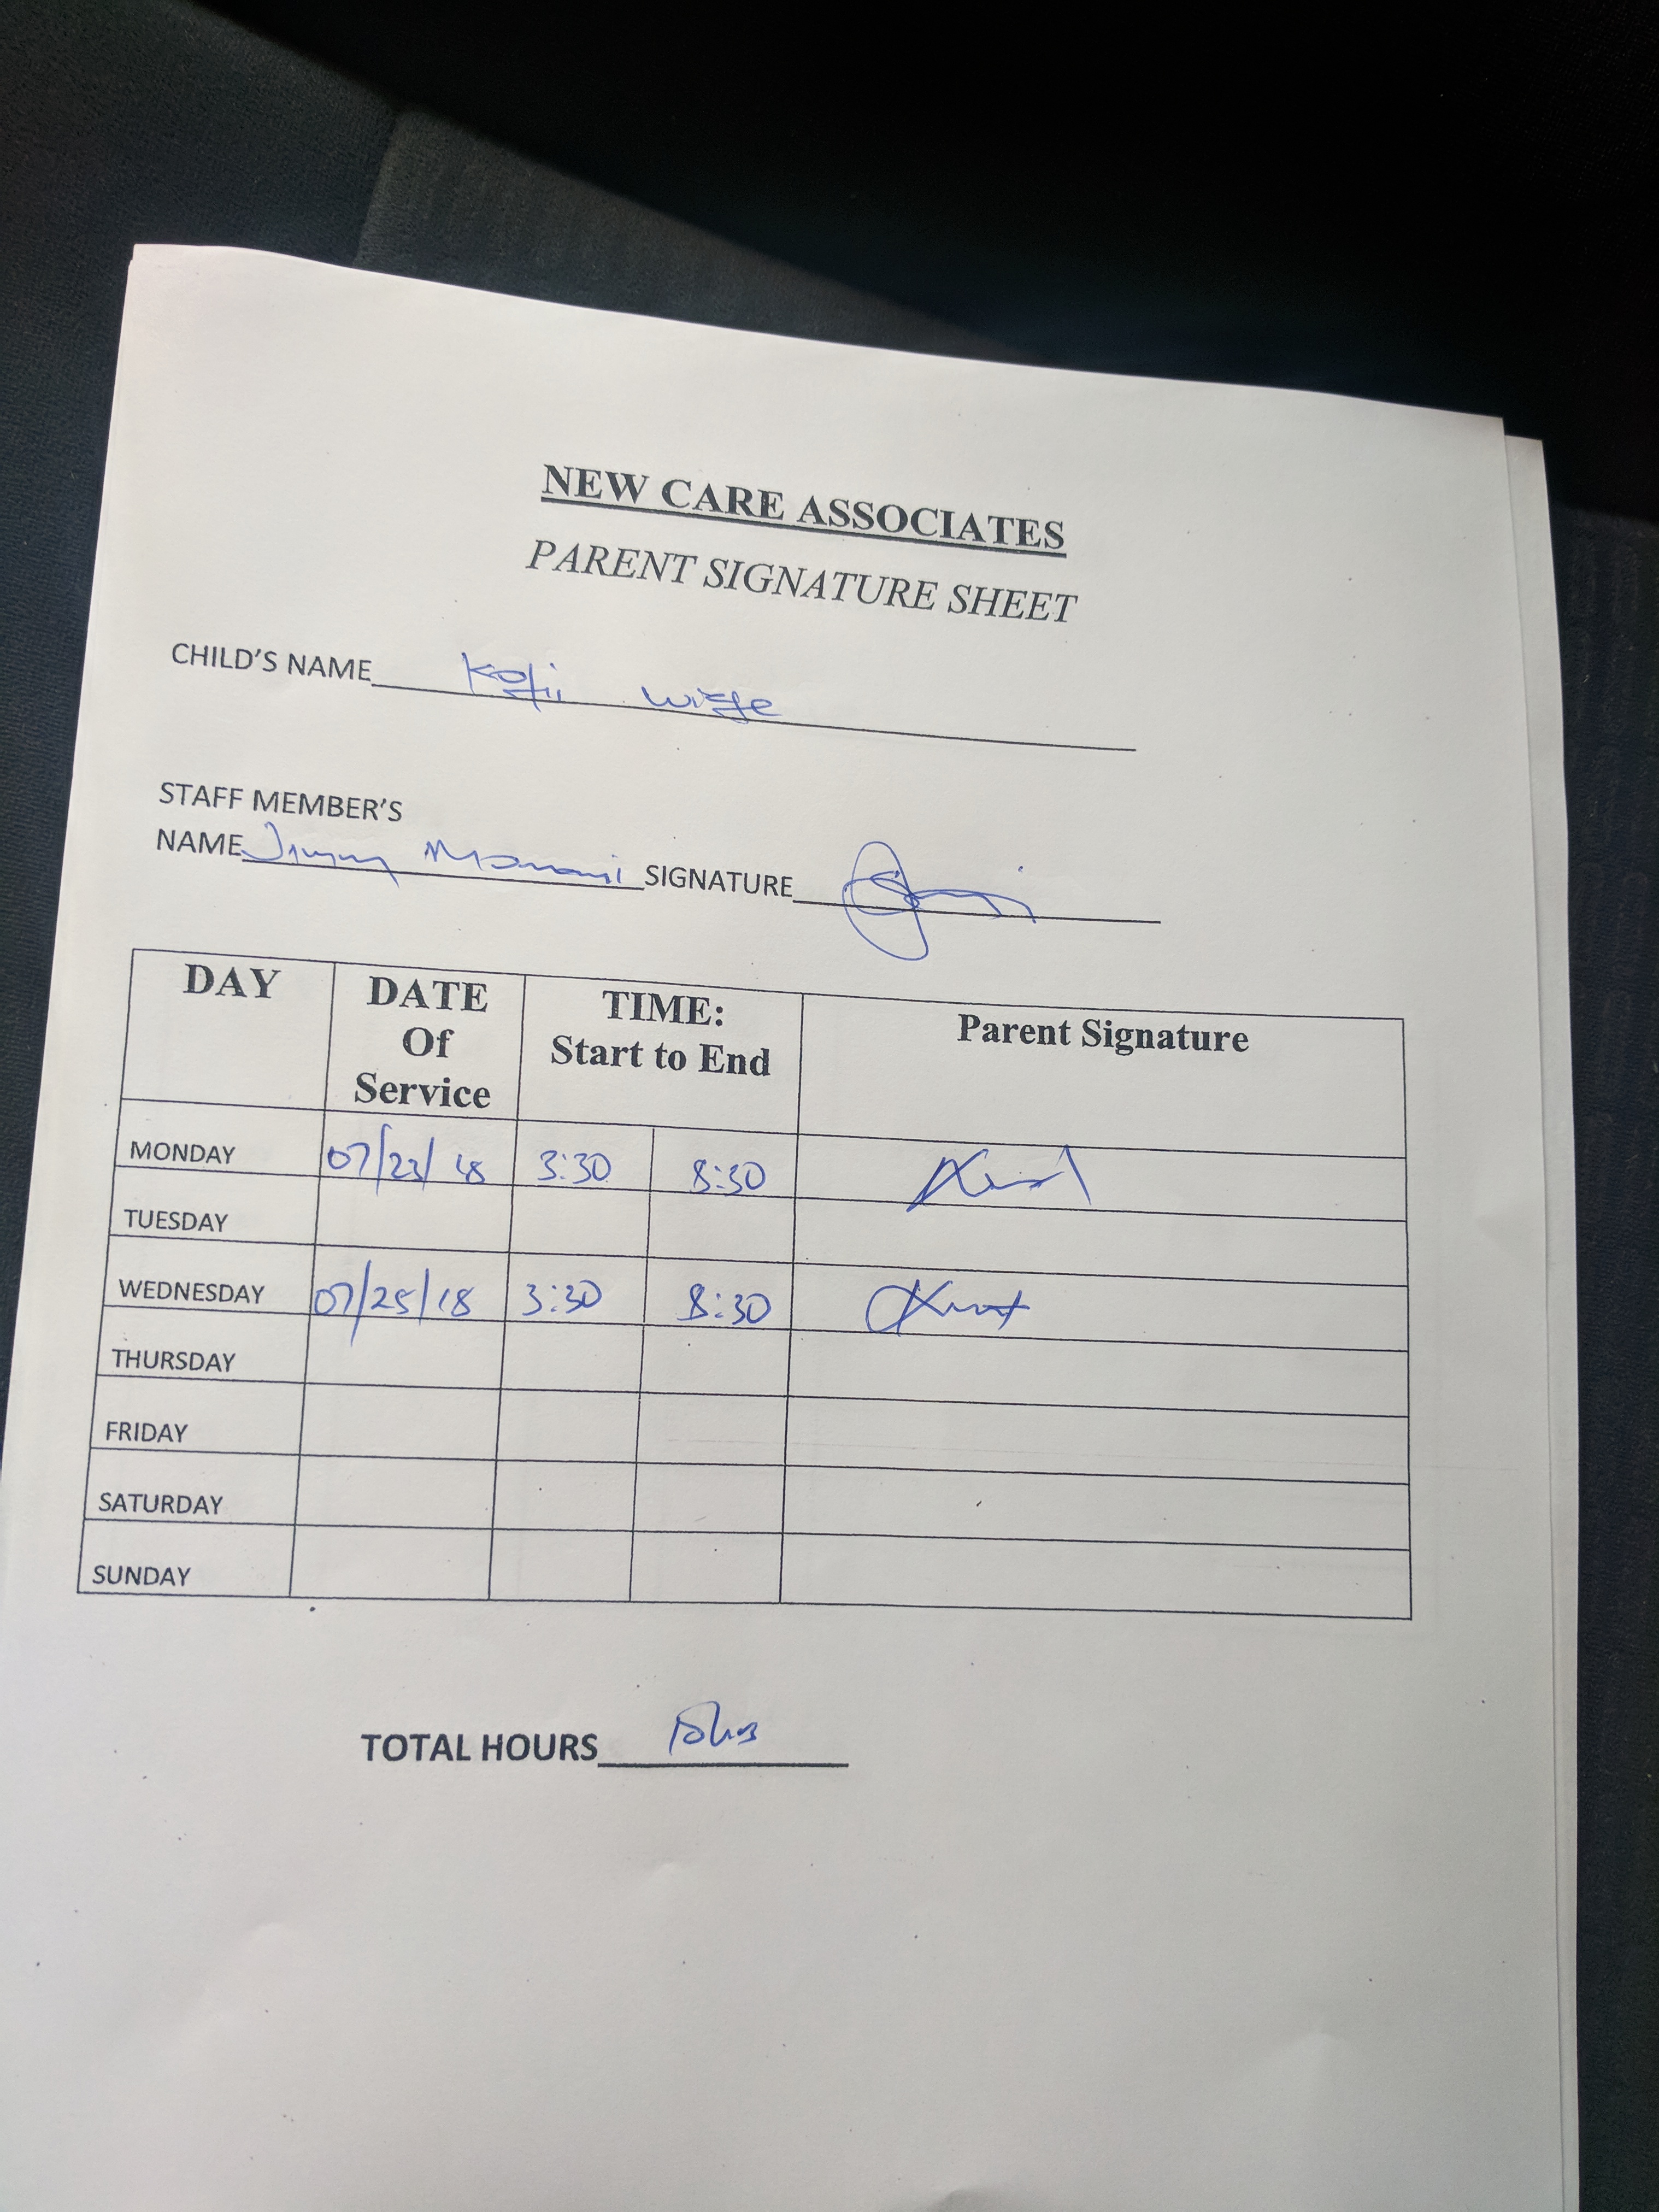 NEW CARE ASSOCIATES
PARENT SIGNATURE SHEET
CHILD'S NAME Kofii
STAFF MEMBER'S
NAME Jimmy SIGNATURE
DAY DATE Of Service TIME: Start to End Parent Signature
MONDAY 07/23/18 3:30 8:30
TUESDAY
WEDNESDAY 07/25/18 3:30 8:30
THURSDAY
FRIDAY
SATURDAY
SUNDAY
TOTAL HOURS 10hrs